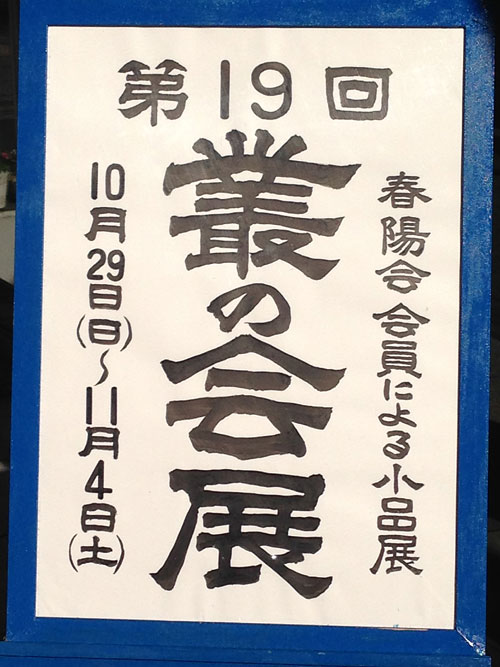 第19回
春陽会会員による小品展
叢の会展
10月29日(日)～11月4日(土)